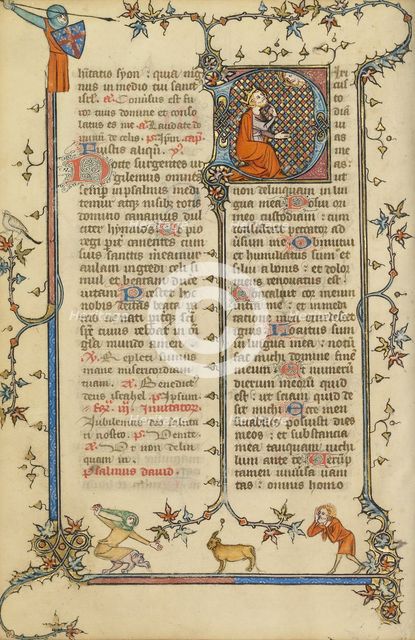 nus in medio tui sanct
isrl. a. Conuersus est fu
ror tuus domine et conso
latus es me a. Laudate do
minum de celis. ps. Ipsum. cap.
Nocte surgentes ui
gilemus omnes
semper in psalmis medi
temur atqz uirib totis
domino canamus dul
citer hymnos. Ut pio
regi pariter canentes cum
suis sanctis mereamur
aulam ingredi celi si
mul et beatam ducere
uitam. Prestet hoc
nobis deitas beata patris
ac nati
spiritus cuius reboat in
gloria mundo amen.
V. Repleti sumus
mane misericordia
tuam. a. Benedictus
deus israhel. ps. Ipsum.
fer. iii. Inuitator.
Iubilemus deo saluta
ri nostro. ps. Uenite.
a. Ut non delin
quam in.
Psalmus dauid.
Dixi cu
sto
di
a
uias
me
as: ut
non delinquam in lin
gua mea. Posui ori
meo custodiam: cum
consisteret peccator ad
uersum me. Obmutui
et humiliatus sum et
silui a bonis: et dolor
meus renouatus est.
Concaluit cor meum
intra me: et in medita
tione mea exardescet
ignis. Locutus sum
in lingua mea: notum
fac michi domine finem
meum. Et numerum
dierum meorum quid
est: ut sciam quid de
sit michi. Ecce men
surabiles posuisti dies
meos: et substantia
mea tanquam nichi
lum ante te. Uerump
tamen uniuersa uani
tas: omnis homo